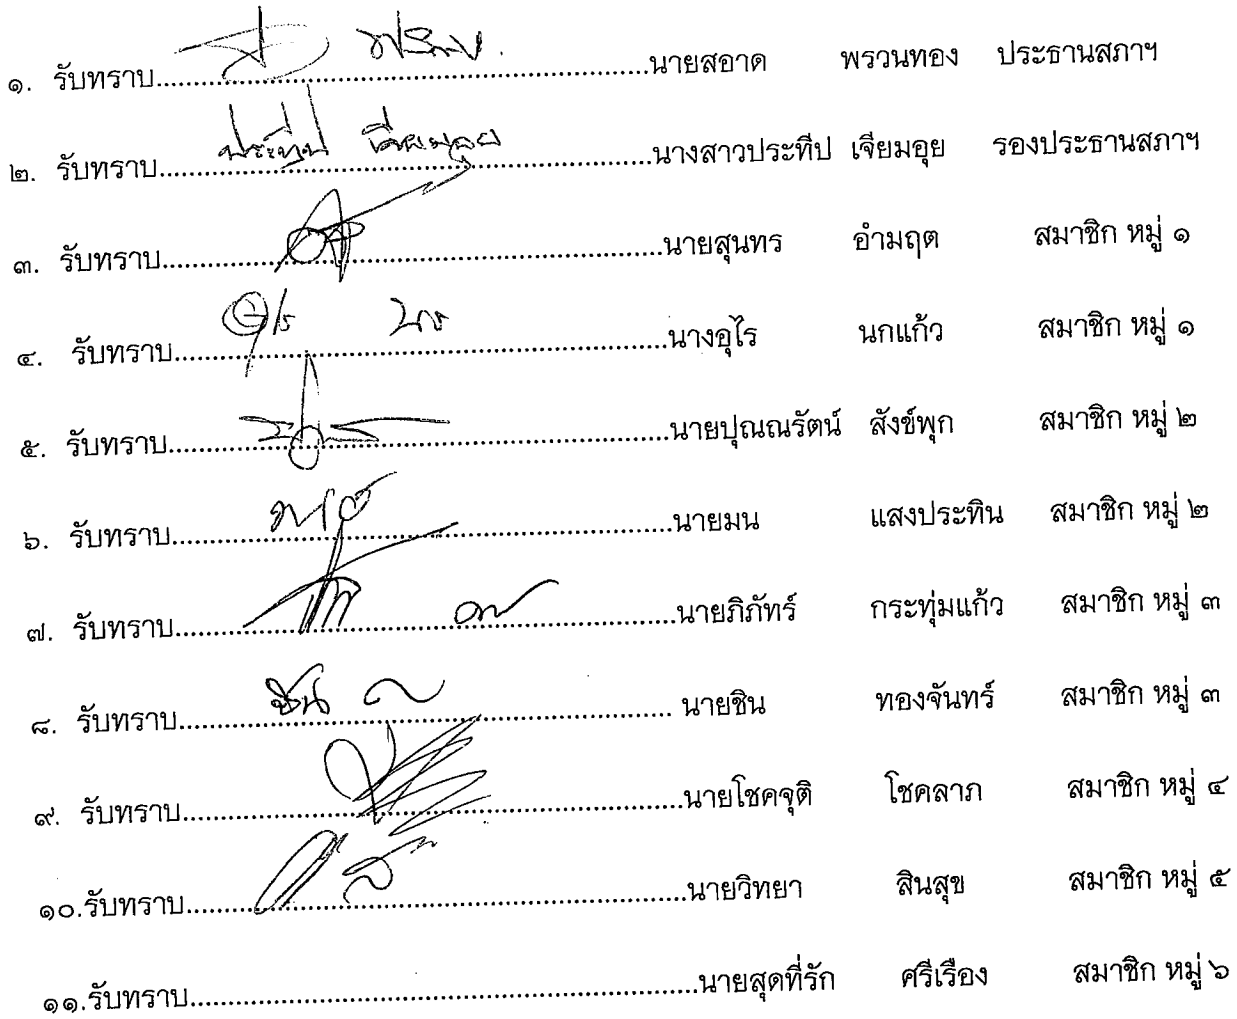 ๑. รับทราบ.......................................................นายสอาด พรวนทอง ประธานสภาฯ
๒. รับทราบ ประทีป เจียมอุย นางสาวประทีป เจียมอุย รองประธานสภาฯ
๓. รับทราบ.......................................................นายสุนทร อำมฤต สมาชิก หมู่ ๑
๔. รับทราบ.......................................................นางอุไร นกแก้ว สมาชิก หมู่ ๑
๕. รับทราบ.......................................................นายปุณณรัตน์ สังข์พุก สมาชิก หมู่ ๒
๖. รับทราบ.......................................................นายมน แสงประทิน สมาชิก หมู่ ๒
๗. รับทราบ.......................................................นายภิภัทร์ กระทุ่มแก้ว สมาชิก หมู่ ๓
๘. รับทราบ ชิน นายชิน ทองจันทร์ สมาชิก หมู่ ๓
๙. รับทราบ.......................................................นายโชคจุติ โชคลาภ สมาชิก หมู่ ๔
๑๐.รับทราบ.......................................................นายวิทยา สินสุข สมาชิก หมู่ ๕
๑๑.รับทราบ.......................................................นายสุดที่รัก ศรีเรือง สมาชิก หมู่ ๖